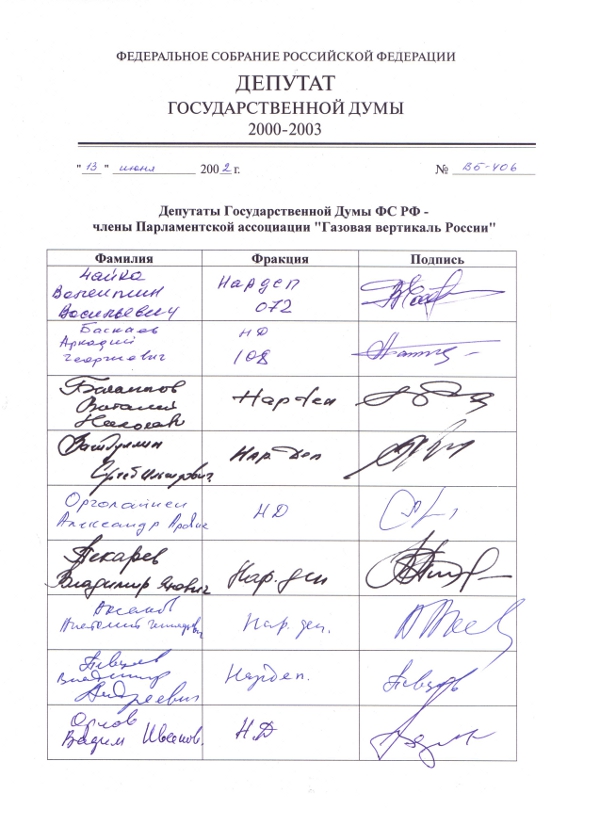 ФЕДЕРАЛЬНОЕ СОБРАНИЕ РОССИЙСКОЙ ФЕДЕРАЦИИ
ДЕПУТАТ
ГОСУДАРСТВЕННОЙ ДУМЫ
2000-2003
"13" июня 2002 г. № ВБ-406
Депутаты Государственной Думы ФС РФ -
члены Парламентской ассоциации "Газовая вертикаль России"
Фамилия Фракция Подпись
Чайка
Валентин
Васильевич
Нардеп
072
Баскаев
Аркадий
Георгиевич
НД
108
Виталий
Нардеп
Нар Деп
Александр
НД
Пекарев
Владимир Янович
Нар. деп
Анатолий
Нар. деп.
Певцов
Владимир
Андреевич
Нардеп.
Орлов
Вадим
Н.Д